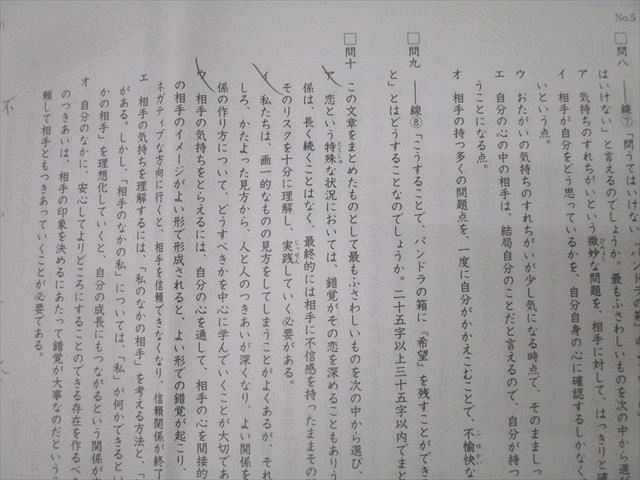 No.5
□問八 ――線⑦「問うてはいけない
はいけない」と言えるのでしょうか。最もふさわしいものを次の中から選び、
ア 気持ちのすれちがいという微妙な問題を、相手に対して、はっきりと確
イ 相手が自分をどう思っているかを、自分自身の心に確認するしかなく、
いという点。
ウ おたがいの気持ちのすれちがいが少し気になる時点で、そのままましっ
エ 自分の心の中の相手は、結局自分のことだと言えるので、自分が持つ
うことになる点。
オ 相手の持つ多くの問題点を、一度に自分がかかえこむことで、不愉快な
ふゆかい
□問九 ――線⑧「こうすることで、パンドラの箱に『希望』を残すことができ
と」とはどうすることなのでしょうか。二十五字以上三十五字以内でまと
□問十 この文章をまとめたものとして最もふさわしいものを次の中から選び、
ア 恋という特殊な状況においては、錯覚がその恋を深めることもありう
とくしゅ
係は、長く続くことはなく、最終的には相手に不信感を持ったままその
そのリスクを十分に理解し、実践していく必要がある。
じっせん
イ 私たちは、画一的なものの見方をしてしまうことがよくあるが、それ
しろ、かたよった見方から、人と人のつきあいが深くなり、よい関係を
係の作り方について、どうすべきかを中心に学んでいくことが大切であ
ウ 相手の気持ちをとらえるには、自分の心を通して、相手の心を間接的
の相手のイメージがよい形で形成されると、よい形での錯覚が起こり、
ネガティブな方向に行くと、相手を信頼できなくなり、信頼関係が終了
エ 相手の気持ちを理解するには、「私のなかの相手」を考える方法と、「
がある。しかし、「相手のなかの私」については、「私」が何かできるとい
かの相手」を理想化していくと、自分の成長にもつながるという関係が
オ 自分のなかに、安心してよりどころにすることのできる存在を作るべき
のつきあいは、相手の印象を決めるにあたって錯覚が大事なのだという
頼して相手ともつきあっていくことが必要である。
不